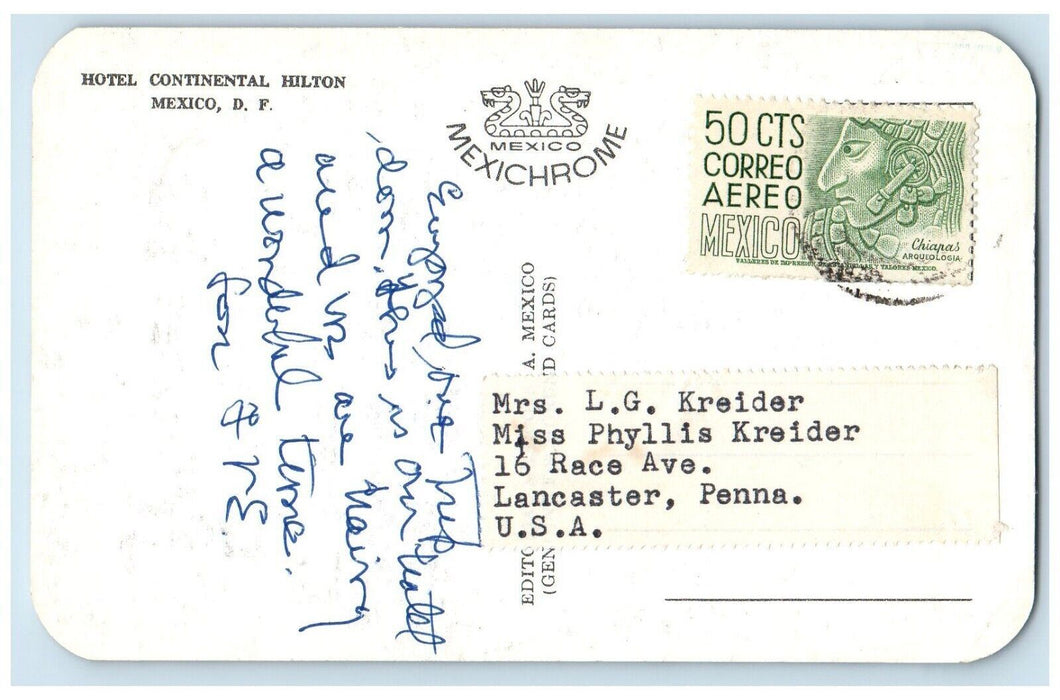 HOTEL CONTINENTAL HILTON
MEXICO, D. F.
MEXICO
MEXICHROME
50 CTS
CORREO
AEREO
MEXICO
Chiapas
ARQUEOLOGIA
Enjoyed our Trip
down. This is our hotel
and we are having
a wonderful time.
A. MEXICO
D CARDS)
EDITO
(GEN
Mrs. L.G. Kreider
Miss Phyllis Kreider
16 Race Ave.
Lancaster, Penna.
U.S.A.